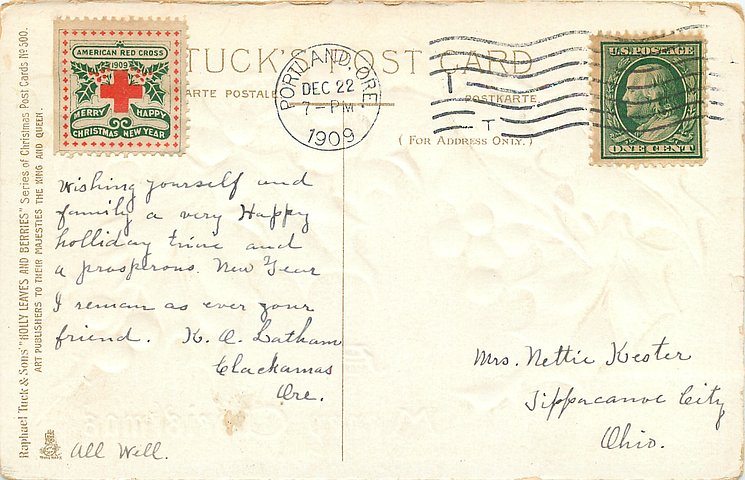 AMERICAN RED CROSS
1909
MERRY HAPPY
CHRISTMAS NEW YEAR
TUCK'S POST CARD
CARTE POSTALE
POSTKARTE
(FOR ADDRESS ONLY.)
PORTLAND, ORE.
DEC 22
7-PM
1909
T
U.S. POSTAGE
ONE CENT
Raphael Tuck & Sons' "HOLLY LEAVES AND BERRIES" Series of Christmas Post Cards No 500.
ART PUBLISHERS TO THEIR MAJESTIES THE KING AND QUEEN.
Wishing yourself and
family a very Happy
holliday time and
a prosperous New Year
I remain as ever your
friend. K. O. Latham
Clackamas
Ore.
All Well.
Mrs. Nettie Kester
Tippacanoe City
Ohio.